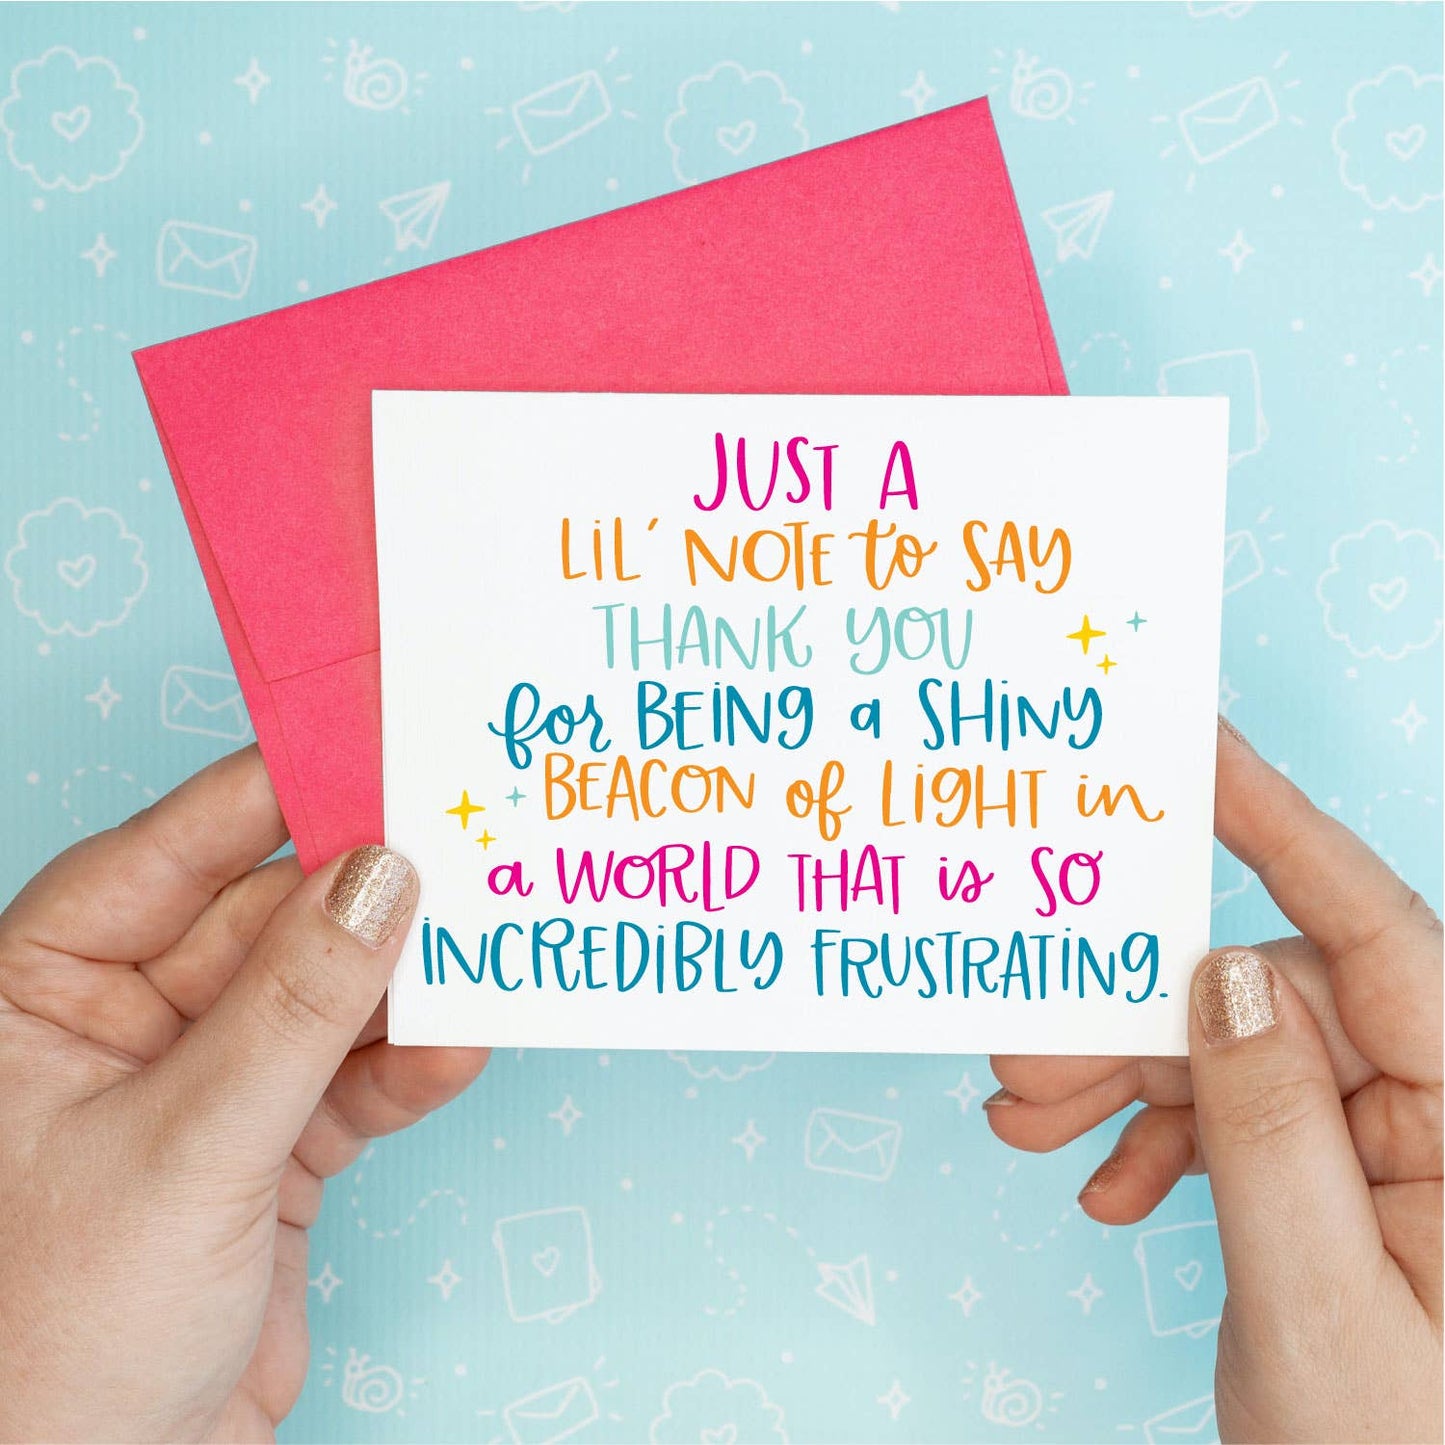 JUST A
LiL' NOTE to SAY
THANK YOU
for BEiNg a SHiNY
BEACON of LigHT in
a WORLD THAT is SO
iNCREDiBLY FRUSTRATiNg.